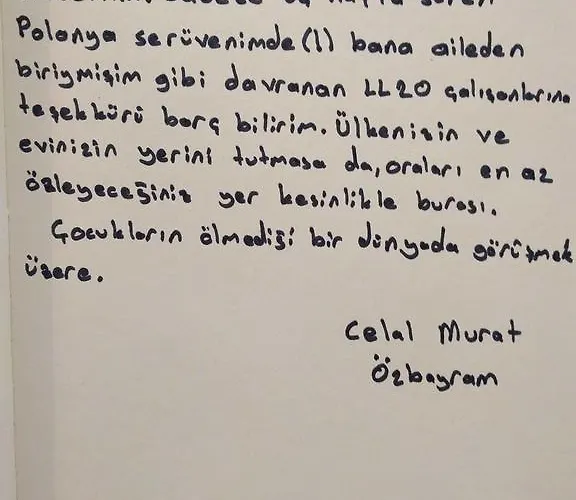 Polonya serüvenimde(!) bana aileden
biriymişim gibi davranan LL20 çalışanlarına
teşekkürü borç bilirim. Ülkenizin ve
evinizin yerini tutmasa da, oraları en az
özleyeceğiniz yer kesinlikle burası.
Çocukların ölmediği bir dünyada görüşmek
üzere.
Celal Murat
Özbayram